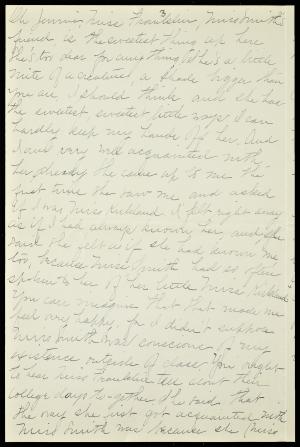 3
Oh Jennie, Miss Franklin, Miss Smith's
friend is the sweetest thing up here
She's too dear for anything. She's a little
mite of a creature, a shade bigger than
you are I should think and she has
the sweetest sweetest little ways I can
hardly keep my hands off her. And
I am very well acquainted with
her already She came up to me the
first time she saw me and asked
if I was Miss Kirkland. I felt right away
as if I had always known her and she
said she felt as if she had known me
too, because Miss Smith had so often
spoken to her of her little Miss Kirkland.
You can imagine that that made me
feel very happy, for I didn't suppose
Miss Smith was conscious of my
existence outside of class. You ought
to hear Miss Franklin tell about their
college days to-gether. She said that
the way she first got acquainted with
Miss Smith was because she (Miss